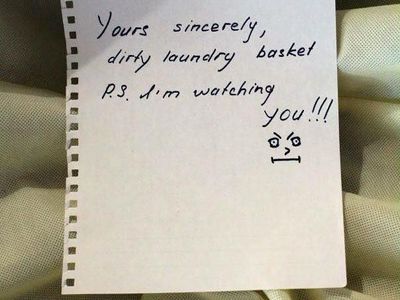 Yours sincerely,
dirty laundry basket
P.S. I'm watching
you!!!